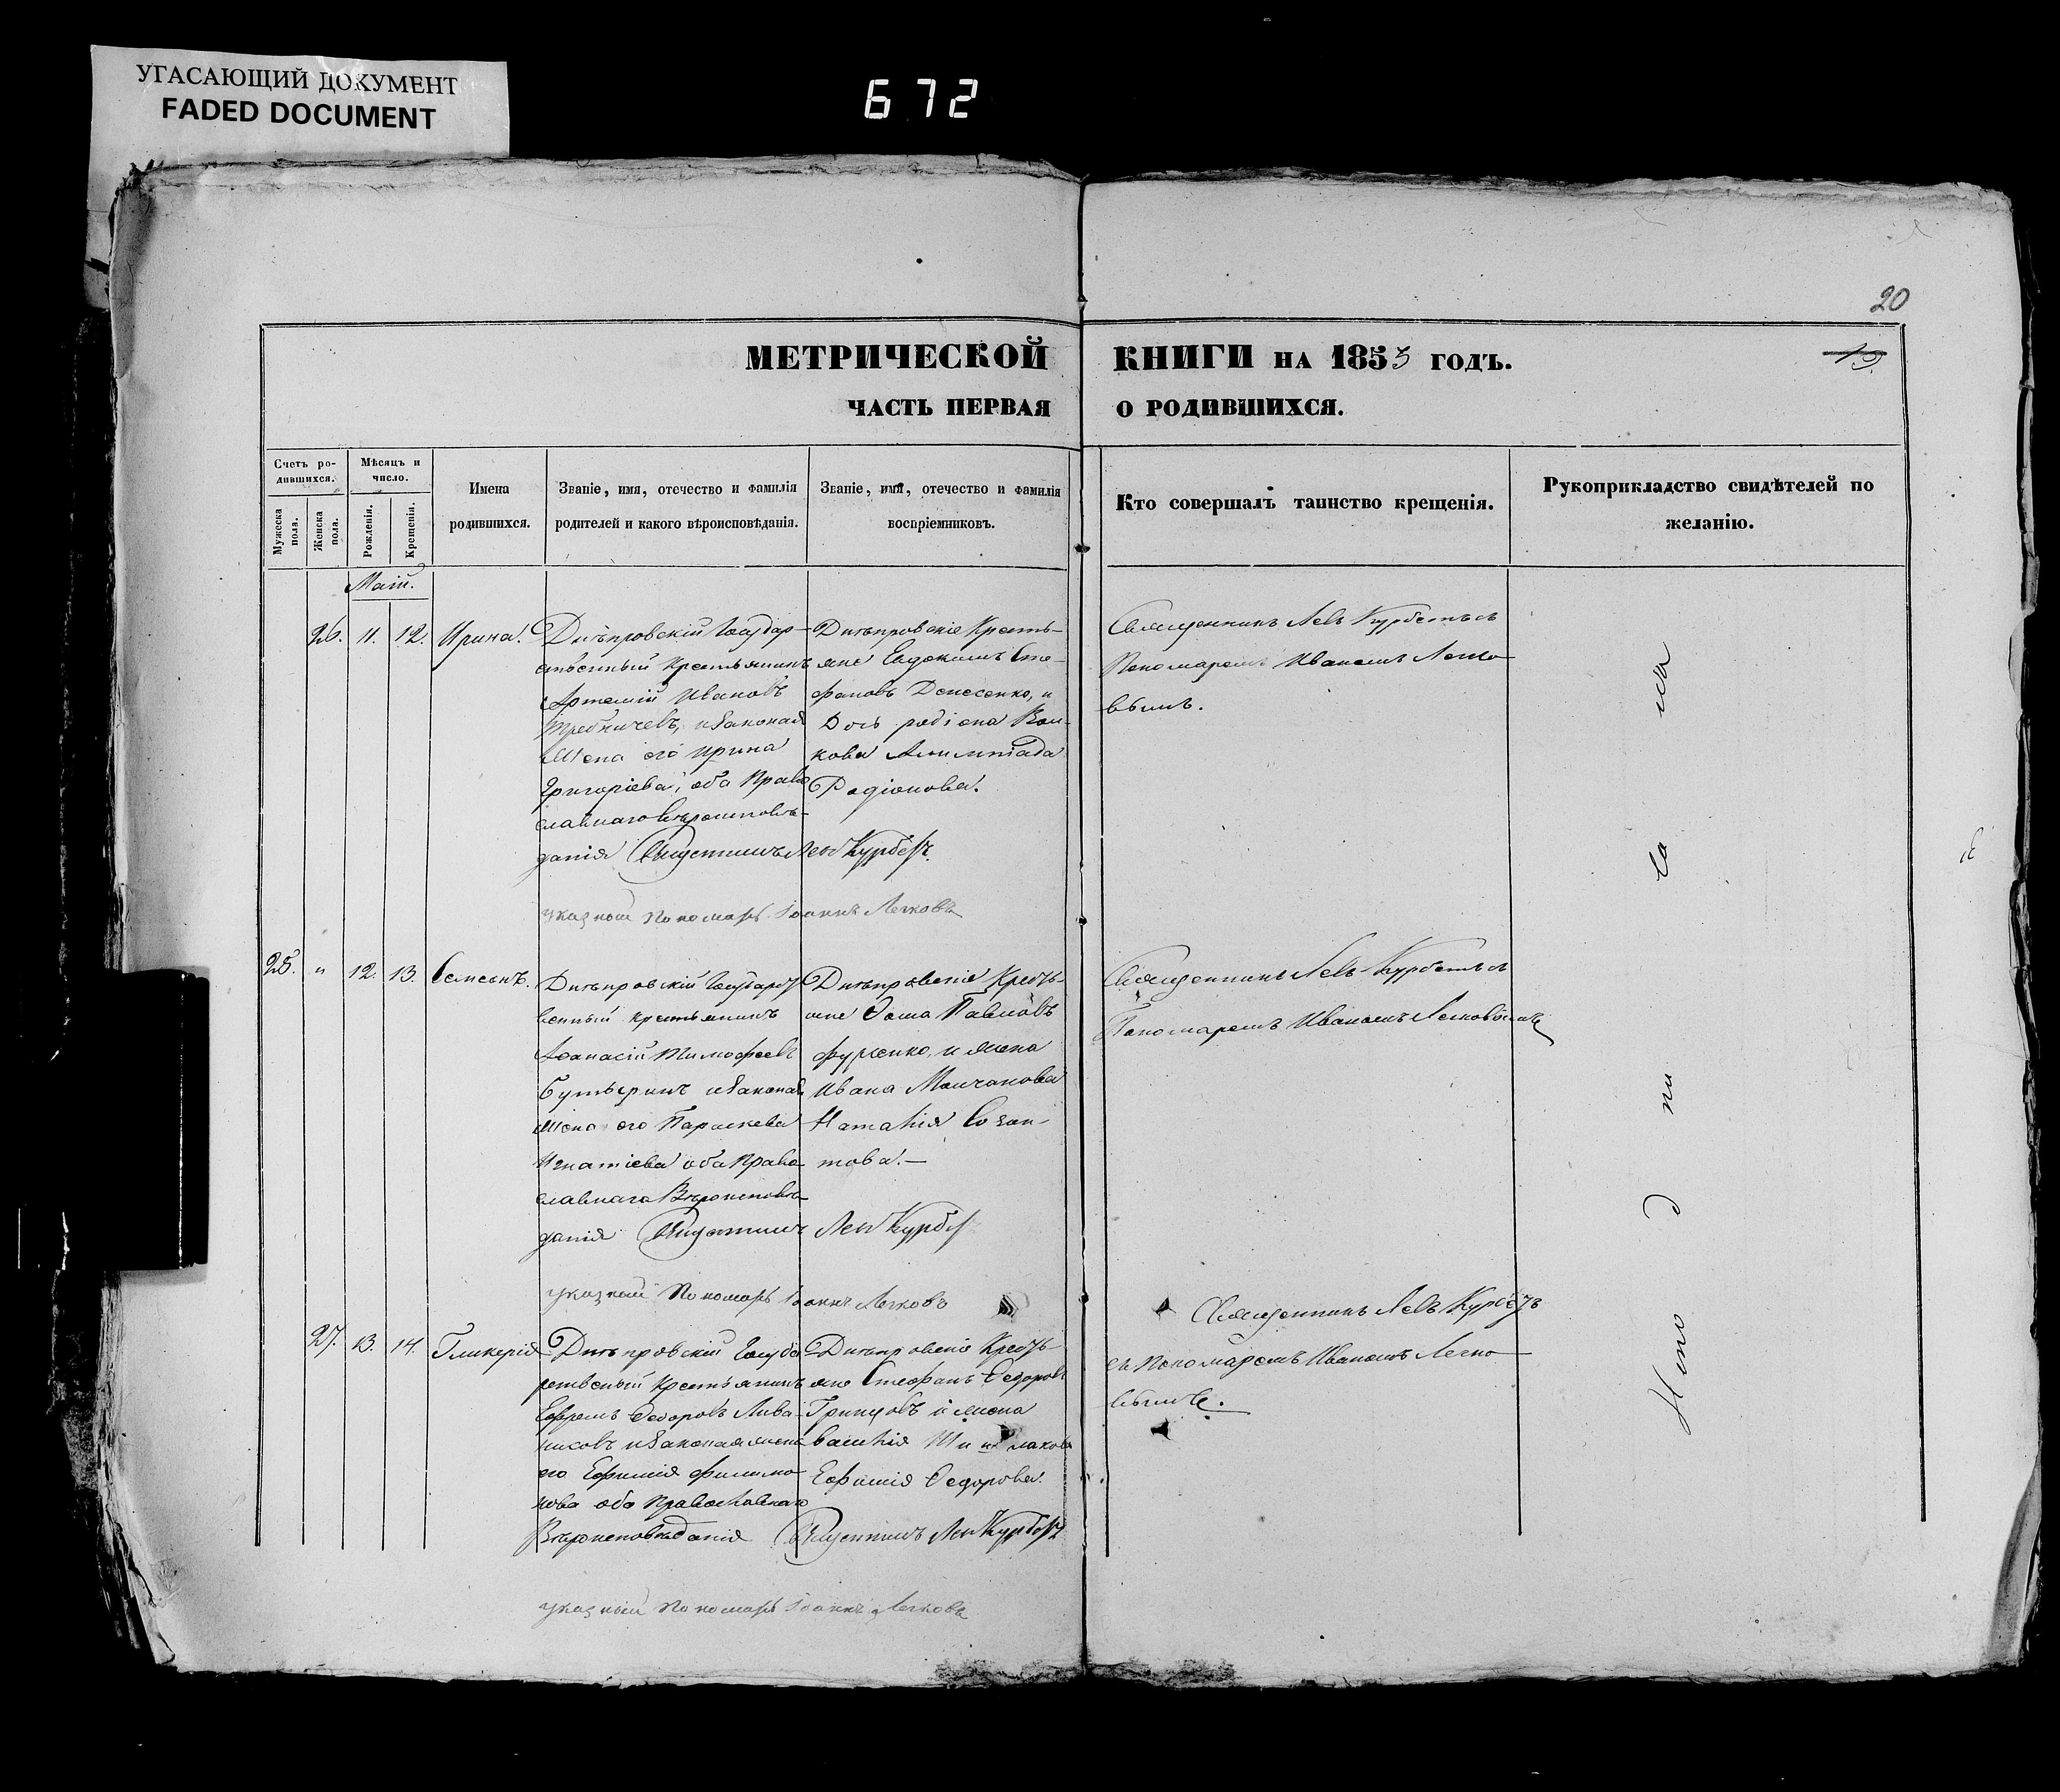 УГАСАЮЩИЙ ДОКУМЕНТ
FADED DOCUMENT
672
20
МЕТРИЧЕСКОЙ КНИГИ НА 1853 ГОДЪ.
19.
ЧАСТЬ ПЕРВАЯ О РОДИВШИХСЯ.
Счетъ ро-
дившихся.
Мужеска пола.
Женска пола.
Мѣсяцъ и
число.
Рожденія.
Крещенія.
Имена
родившихся.
Званіе, имя, отечество и фамилія
родителей и какого вѣроисповѣданія.
Званіе, имя, отечество и фамилія
воспріемниковъ.
Кто совершалъ таинство крещенія.
Рукоприкладство свидѣтелей по
желанію.
Маій.
26. 11. 12. Ирина.
Днѣпровскій Государ-
ственный крестьянинъ
Артемій Ивановъ
и законная
жена его Ирина
Григоріева, оба Право
славнаго вѣроисповѣ-
данія
Днѣпровскіе Кресть-
яне Евдокимъ Сте-
фановъ Денесенко, и
Дочь родіона Вол-
кова
Родіонова.
Священникъ Левъ Курбетъ съ
Пономаремъ Иваномъ Легко-
вымъ.
Левъ Курбетъ
указный Пономарь Іоаннъ Легковъ
25. " 12. 13. Семеонъ.
Днѣпровскій Государст
венный крестьянинъ
Аѳанасій Тимофеевъ
Бутыринъ и законная
жена его Параскева
Игнатіева оба Право
славнаго Вѣроисповѣ-
данія
Днѣпровскіе Кресть-
яне Ѳома Павловъ
и жена
Ивана Молчанова
Наталія Созон-
това.—
Священникъ Левъ Курбетъ съ
Пономаремъ Иваномъ Легковымъ
Левъ Курбет
указный Пономарь Іоаннъ Легковъ
27. 13. 14. Гликерія
Днѣпровскій Госуда
рственый Крестьянинъ
Ефремъ Ѳедоровъ Лива-
никовъ и законная жена
его Ефимія Филимо-
нова оба Православнаго
Вѣроисповѣданія
Днѣпровскіе Кресть-
яне Стефанъ Ѳедоровъ
Гринцовъ и жена
Василія
Ефимія Ѳедорова.
Священникъ Левъ Курбетъ
съ Пономаремъ Иваномъ Легко-
вымъ.
Левъ Курбетъ
указный Пономарь Іоаннъ Легковъ